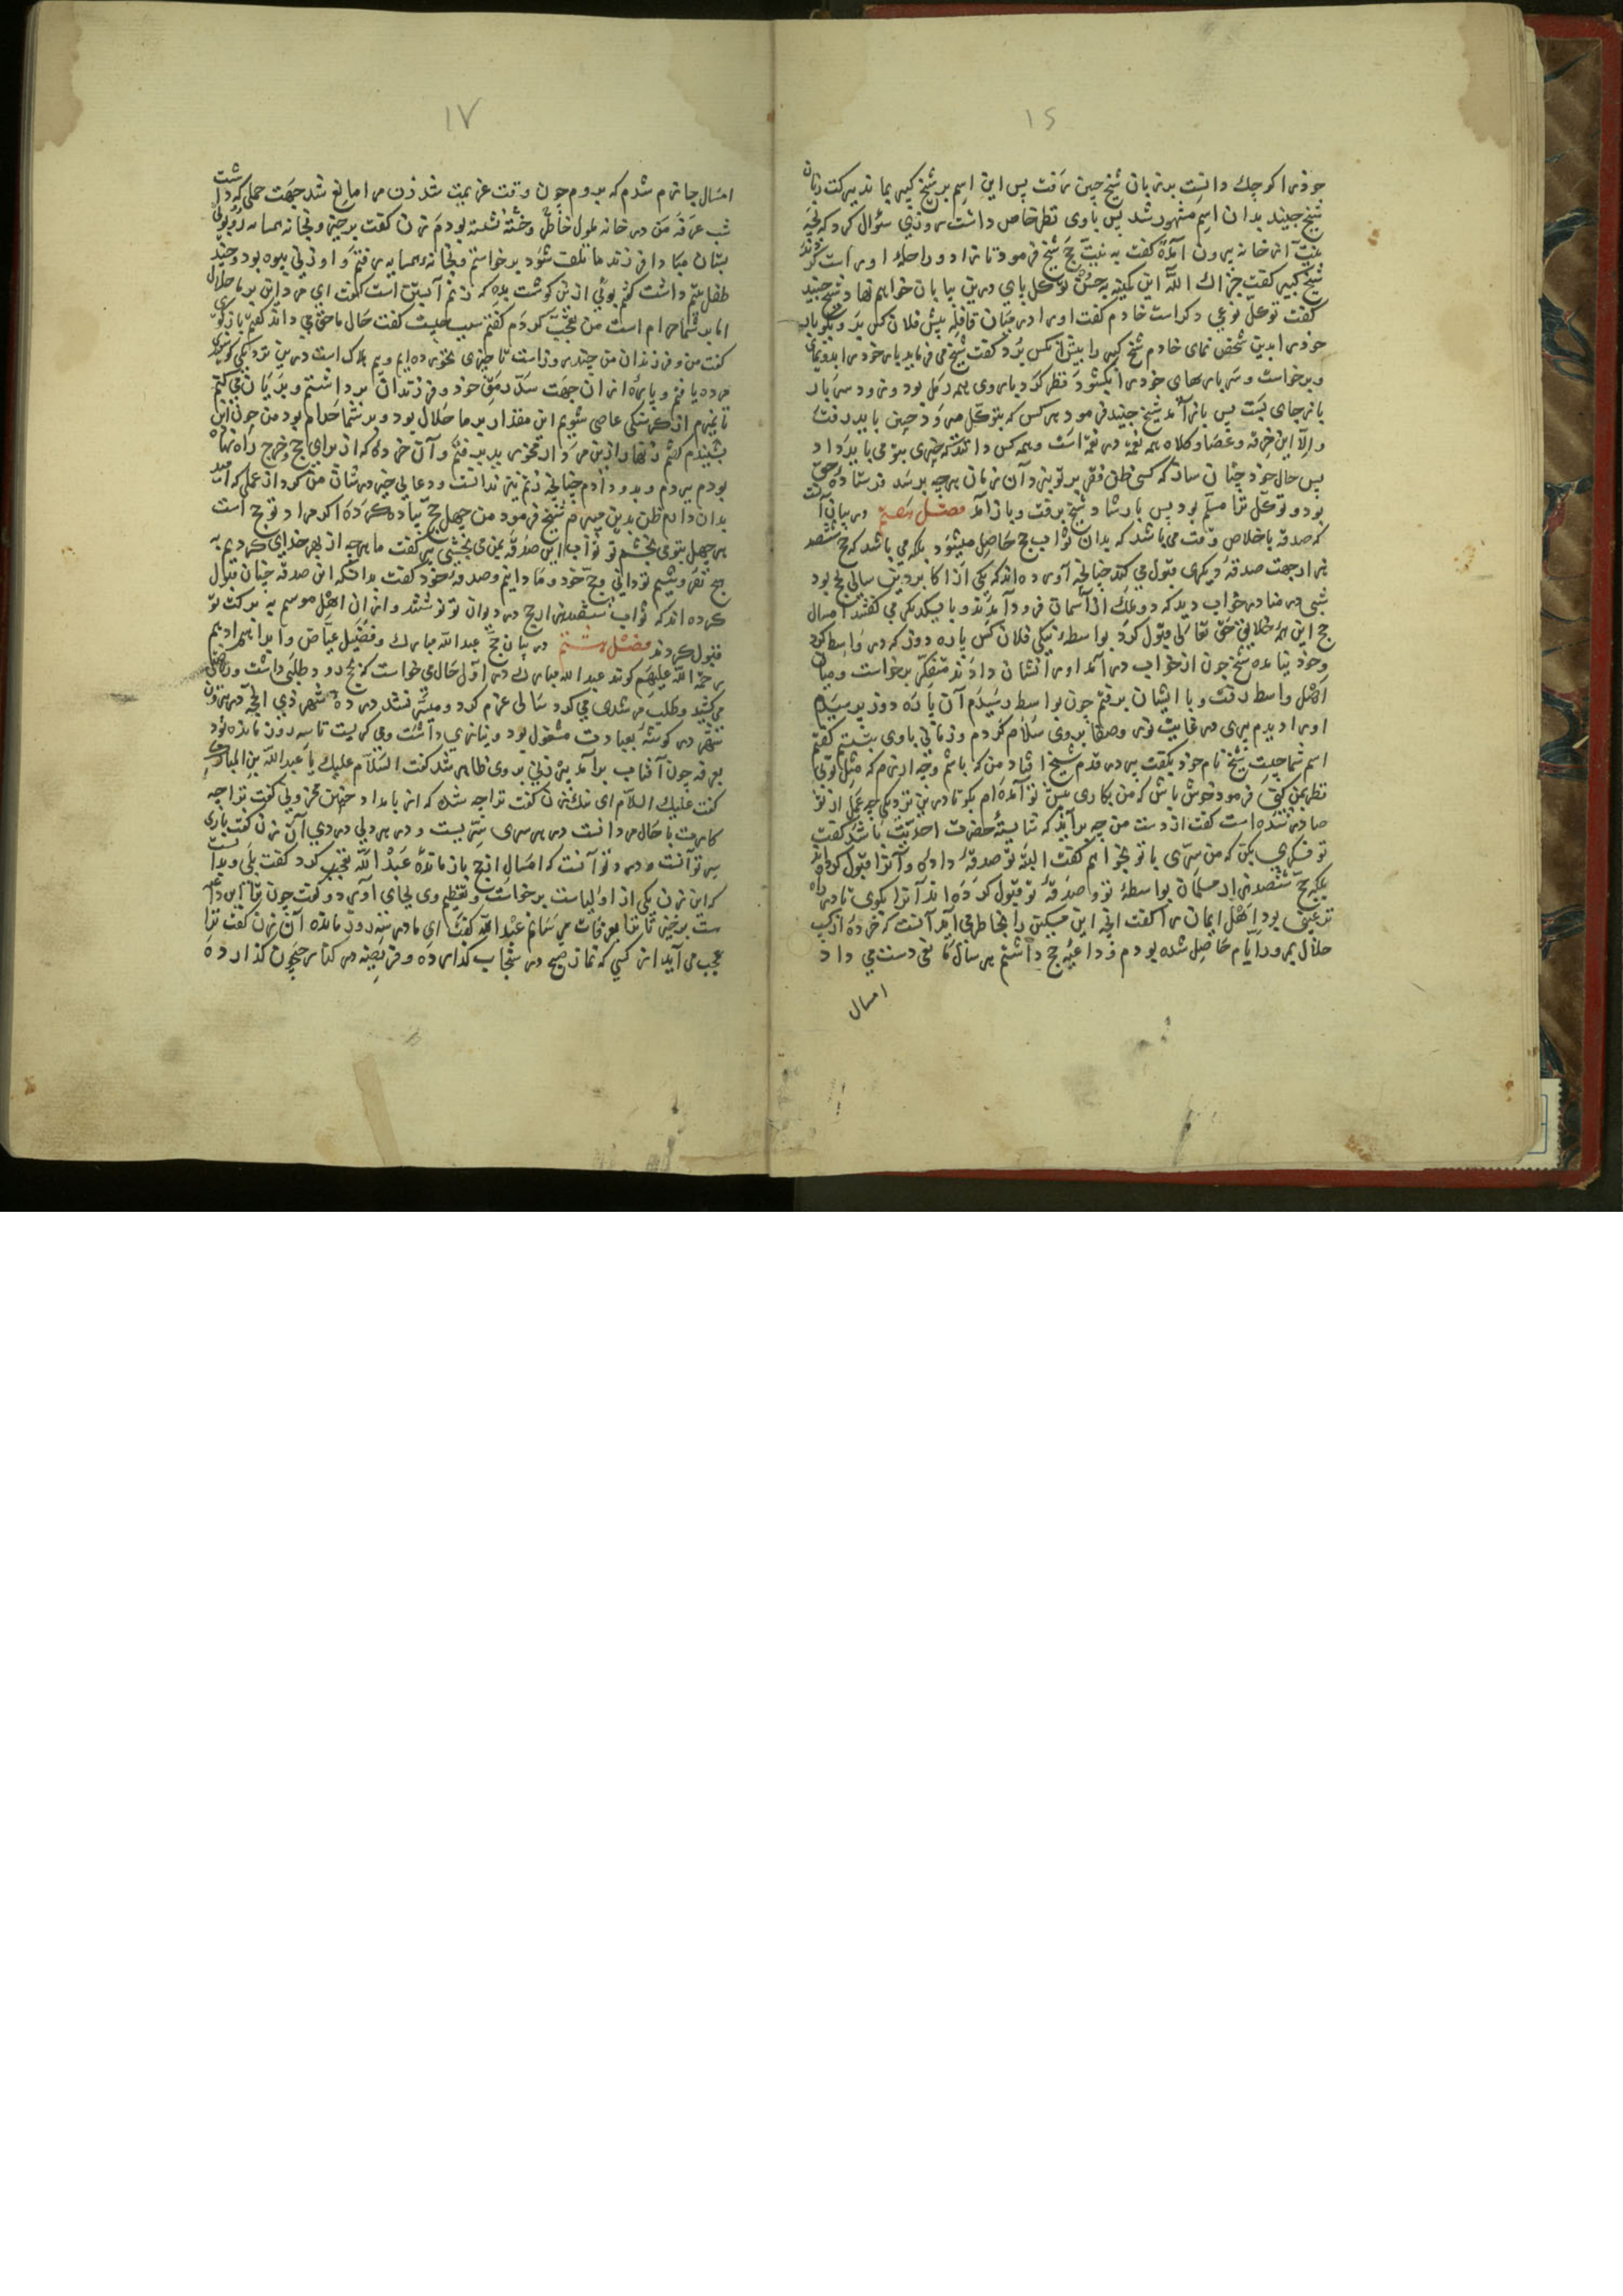 ١٦
خود را کوچک دانست بر زبان شیخ چنین رفت پس این اسم بر شیخ کبیر بماند ببرکت زبان
شیخ جنید بدان اسم مشهور شد پس با وی نظر خاص داشت روزی سؤال کرد که بچه
نیت از خانه بیرون آمدهٔ گفت به نیت حج شیخ فرمود تا زاد و راحله او راست کردند
شیخ کبیر گفت جزاك اللّه این کمینه به حسن توکل پای درین بیابان خواهم نهاد شیخ جنید
گفت توکل نوعی دکر است خادم گفت او را در میان قافله پیش فلان کس بر و بگو بار
خود را بدین شخص نمای خادم شیخ کبیر را پیش آنکس برد گفت شیخ می فرماید بار خود را بدو نمای
و برخاست و سر بارهای خود را بکشود نظر کرد بار وی همه رمل بود و زود سر بار
باز جای بست پس باز آمد شیخ جنید فرمود هر کس که بتوکل میرود چنین باید رفت
و الّا این خرقه و عصا و کلاه همه لقمه در لقمه است و همه کس دانند که چیزی بتو می باید داد
پس حال خود چنان ساز که کسی ظن فقر بر تو نبرد آن زمان هر چه برسد فرستاده حق
بود و توکل ترا مسلّم بود پس بارشاد شیخ برفت و باز آمد فصل هفتم در بیان آنست
که صدقه باخلاص وقت می باشد که بدان ثواب حج حاصل میشود بلکه می باشد که حج ششصد
هزار جهت صدقهٔ دیکری قبول می کند چنانچه آورده اند که یکی از اکابر دین سالی بحج بود
شبی در منا در خواب دید که دو ملك از آسمان فرود آمدند و با یکدیکر می گفتند امسال
حج این همه خلایق حق تعالی قبول کرد بواسطهٔ نیکی فلان کس پاره دوز که در واسط بود
و خود نیامده شیخ چون از خواب در آمد او را نشان دادند متفکر برخاست و میان
اهل واسط رفت و با ایشان برفتم چون بواسط رسیدم آن پاره دوز بپرسیدم
او را دیدم پیری در غایت نور و صفا بر وی سلام کردم و زمانی با وی بنشستم گفتم
اسم شما چیست شیخ نام خود بگفت پیر در قدم شیخ افتاد من که باشم و چه ارزم که مثل تویی
نظر بمن کنی فرمود خوش باش که من بکاری پیش تو آمده ام بگو تا درین نزدیکی چه عمل از تو
صادر شده است گفت از دست من چه برآید که شایستهٔ حضرت احدیت باشد گفت
تو فکری بکن که من سرّی با تو بخواهم گفت البته تو صدقهٔ داده و آنرا قبول کرده اند
بلکه حج ششصد هزار مسلمان بواسطهٔ تو و صدقهٔ تو قبول کرده اند آنرا بکوی تا در راه
ترغیبی بود اهل ایمان را گفت آنچه این مسکین را بخاطر می آید آنست که خردهٔ از کسب
حلال بمرور ایّام حاصل شده بودم و داعیهٔ حج داشتم هر سال مانعی دست می داد
امسال
١٧
امسال جازم شدم که بروم چون وقت عزیمت شد زن مرا مانع شد جهت حملی که داشت
شب عرفه من در خانه ملول خاطر و خسته نشسته بودم زن گفت برخیز و بخانه همسایه رو بوی
بستان مبادا فرزند ما تلف شود برخواستم و بخانهٔ همسایه رفتم و او زنی بیوه بود و چند
طفل یتیم داشت گفتم بوئی ازین کوشت بده که زنم آبستن است گفت ای مرد این بر ما حلال
اما بر شما حرام است من تعجب کردم گفتم سبب چیست گفت حال ما حق می داند گفتم باز کوی
گفت من و فرزندان من چند روز است تا چیزی نخورده ایم و بیم هلاك است درین نزدیکی کوسفندی
مرده یافتم و پارهٔ از آن جهت سدّ رمق خود و فرزندان برداشتم و بریان می کنم
تا نمیرم از گرسنگی عاصی شویم این مقدار بر ما حلال بود و بر شما حرام بود من چون این
بشنیدم گفتم زنهار ازین مردار مخور بدر رفتم و آن خرده که از برای حج و خرج راه نهاده
بودم ببردم و بدو دادم چنانچه زنم نیز ندانست و دعایی خیر در شان من کرد از عملی که امید
بدان دارم ظن بدین میبرم شیخ فرمود من چهل حج پیاده کرده ام مراد تو حج است
هر چهل بتو می بخشم تو ثواب این صدقه بمن می بخشی پیر گفت ما هر چه از بهر خدای کردیم به
هیچ نفروشیم تو دانی و حج خود و ما دانیم و صدقه خود گفت بدانکه این صدقه چنان قبول
کرده اند که ثواب ششصد هزار حج در دیوان تو نوشتند و از آن اهل موسم به برکت تو
قبول کردند فصل هشتم در بیان حج عبد الله مبارك و فضیل عیاض و ابراهیم ادهم
رحمة اللّه علیهم گویند عبد الله مبارك در اول حال می خواست که بحج رود و طلبی داشت و ریاضتی
می کشید و طلب مرشدی می کرد سالی عزم کرد و میسّر نشد در دههٔ شهر ذی الحجه در بیرون
شهر در گوشهٔ بعبادت مشغول بود و نیازی داشت و می کریست تا سه روز مانده بود
بعرفه چون آفتاب برآمد پیر زنی بر وی ظاهر شد گفت السّلام علیك یا عبد اللّه بن المبارك
گفت علیك السلام ای نیك زن گفت ترا چه شده که از بامداد چنین محزونی گفت ترا چه
کارست با حال مردانت در هر سری سرّیست و در هر دلی دردی آن زن گفت باری
سر تو آنست و درد تو آنست که امسال از حج باز ماندهٔ عبد اللّه تعجب کرد گفت بلی و بدانست
که این زن یکی از اولیاست برخاست و تعظیم وی بجای آورد و گفت چون می دانی
برخیز تا ترا بعرفات می رسانم عبد اللّه گفت ای مادر سه روز مانده آن زن گفت ترا
عجب می آید از کسی که نماز صبح در سنجاب گذارده و فریضه در کنار جیحون گذارده